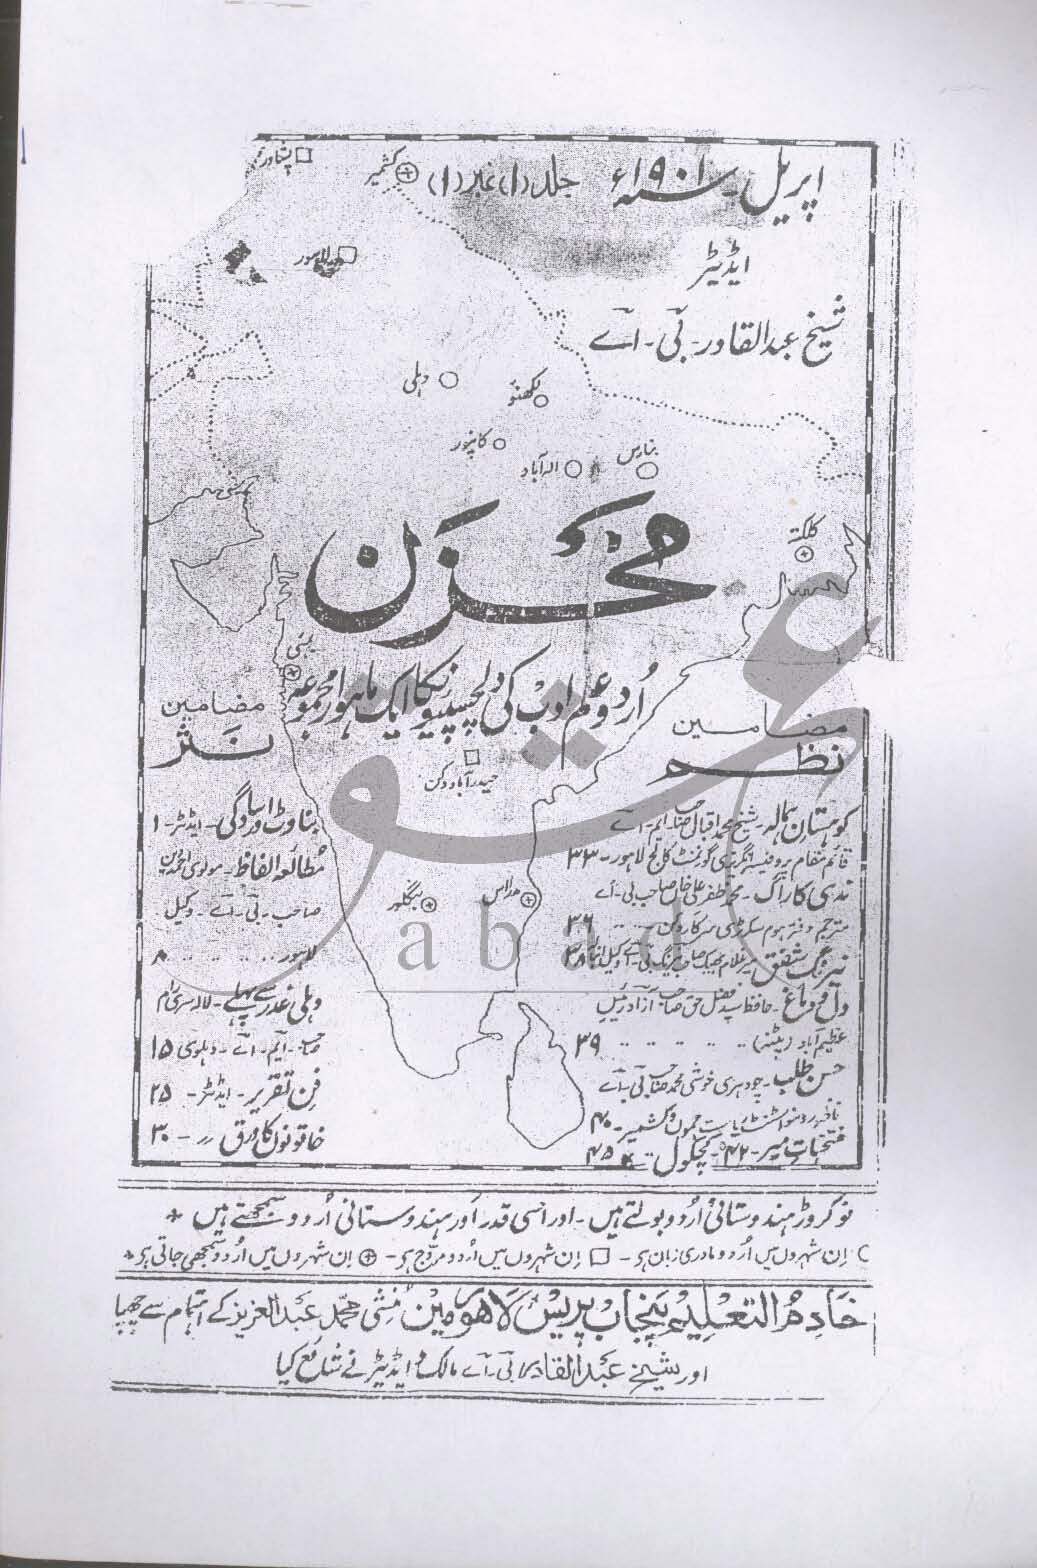 اپریل سنہ ۱۹۰۱ء جلد (۱) نمبر (۱)
کشمیر
پشاور
ایڈیٹر
لاہور
شیخ عبدالقادر - بی - اے
دہلی
لکھنؤ
کانپور
بنارس
الہ آباد
کلکتہ
مخزن
بمبئی
اُردو علم ادب کی دلچسپیوں کا ایک ماہوار مجموعہ
مضامین
نظم
کوہستان ہمالہ - شیخ محمد اقبال صاحب ایم اے
قائم مقام پروفیسر انگریزی گورنمنٹ کالج لاہور - ۳۳
ندی کا راگ - محمد ظفر علی خاں صاحب بی - اے
مترجم دفتر ہوم سکرٹری سرکار ۳۶
نیرنگ شفق میر غلام بھیک صاحب نیرنگ بی - اے وکیل
دل و دماغ - حافظ سید فضل حق صاحب آزاد رئیس
عظیم آباد (پٹنہ) ۳۹
حسن طلب - چودہری خوشی محمد صاحب بی - اے
ریاست جموں و کشمیر - ۴۰
منتخبات میر - ۴۲ - کچکول - ۴۵
مضامین
نثر
بناوٹ اور سادگی - ایڈیٹر - ۱
مطالعہ الفاظ - مولوی احمد دین
صاحب - بی - اے - وکیل
لاہور ۸
دہلی غدر سے پہلے - لالہ سری رام
صاحب - ایم - اے - دہلوی ۱۵
فن تقریر - ایڈیٹر - ۲۵
خاتونوں کا ورق " - ۳۰
حیدر آباد دکن
مدراس
بنگلور
abad
نو کروڑ ہندوستانی اُردو بولتے ہیں - اور اسی قدر اور ہندوستانی اُردو سمجھتے ہیں *
○ اِن شہروں میں اُردو مادری زبان ہے - □ اِن شہروں میں اُردو مروّج ہے - ⊕ اِن شہروں میں اُردو سمجھی جاتی ہے *
خادم التعلیم پنجاب پریس لاہور میں منشی محمد عبدالعزیز کے اہتمام سے چھپا
اور شیخ عبدالقادر بی - اے مالک و ایڈیٹر نے شائع کیا